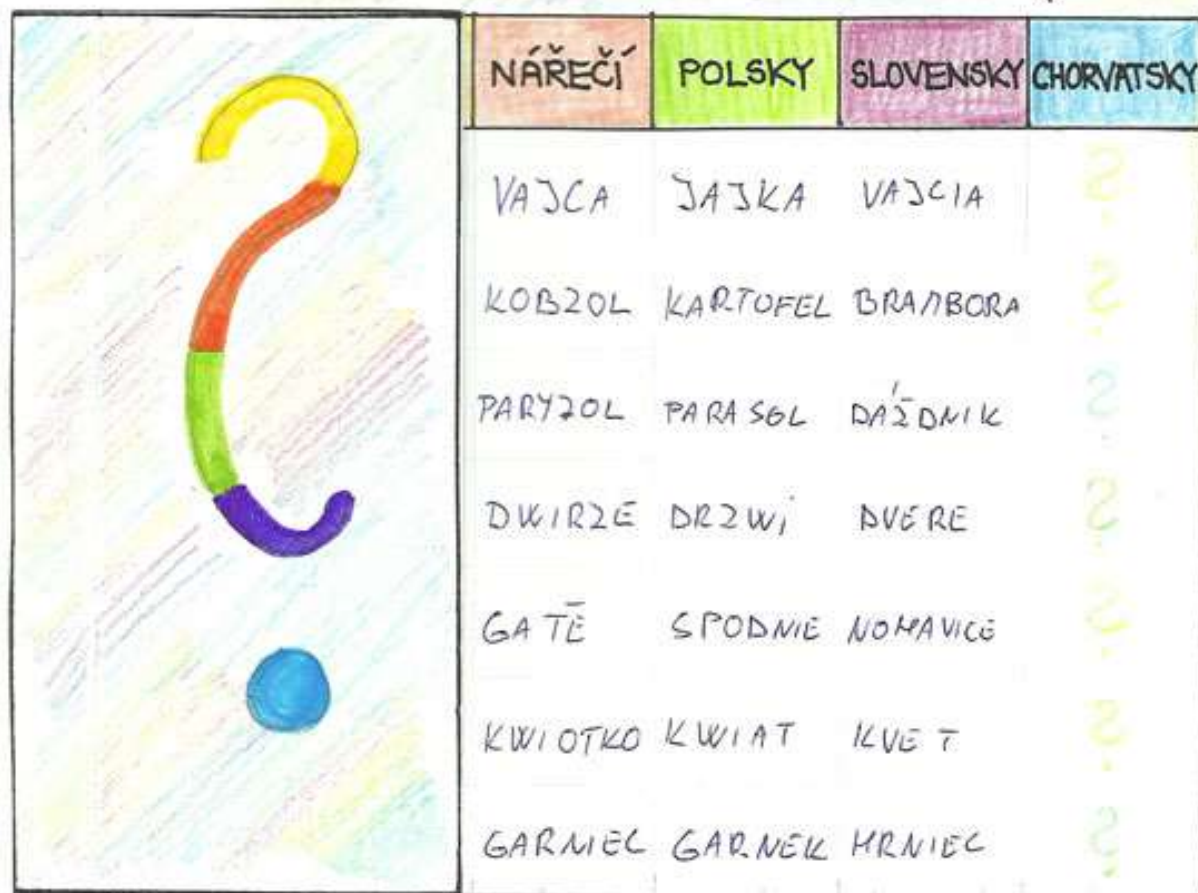 NÁŘEČÍ POLSKY SLOVENSKY CHORVATSKY
VAJCA JAJKA VAJCIA
KOBZOL KARTOFEL BRAMBORA
PARYZOL PARASOL DÁŽDNIK
DWIRZE DRZWi DVERE
GATĚ SPODNIE NOHAVICE
KWIOTKO KWIAT KVET
GARNIEC GARNEK HRNIEC